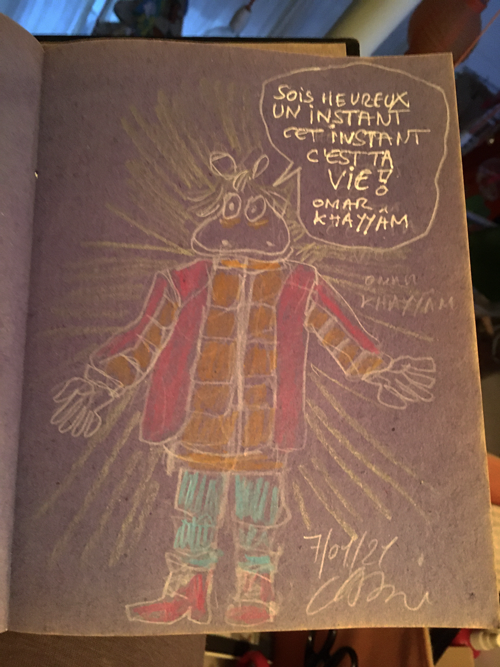 SOIS HEUREUX
UN INSTANT
CET INSTANT
C'EST TA
VIE !
OMAR
KHAYYÂM
OMAR
KHAYYÂM
7/01/21